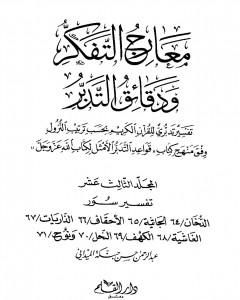 معارج التفكر
ودقائق التدبر
تفسير تدبري للقرآن الكريم بحسب ترتيب النزول
وفق منهج كتاب «قواعد التدبر الأمثل لكتاب الله عز وجل»
المجلد الثالث عشر
تفسير سور
الدخان/٦٤ الجاثية/٦٥ الأحقاف/٦٦ الذاريات/٦٧
الغاشية/٦٨ الكهف/٦٩ النحل/٧٠ ونوح/٧١
عبد الرحمن حسن حبنكة الميداني
دار القلم
دمشق